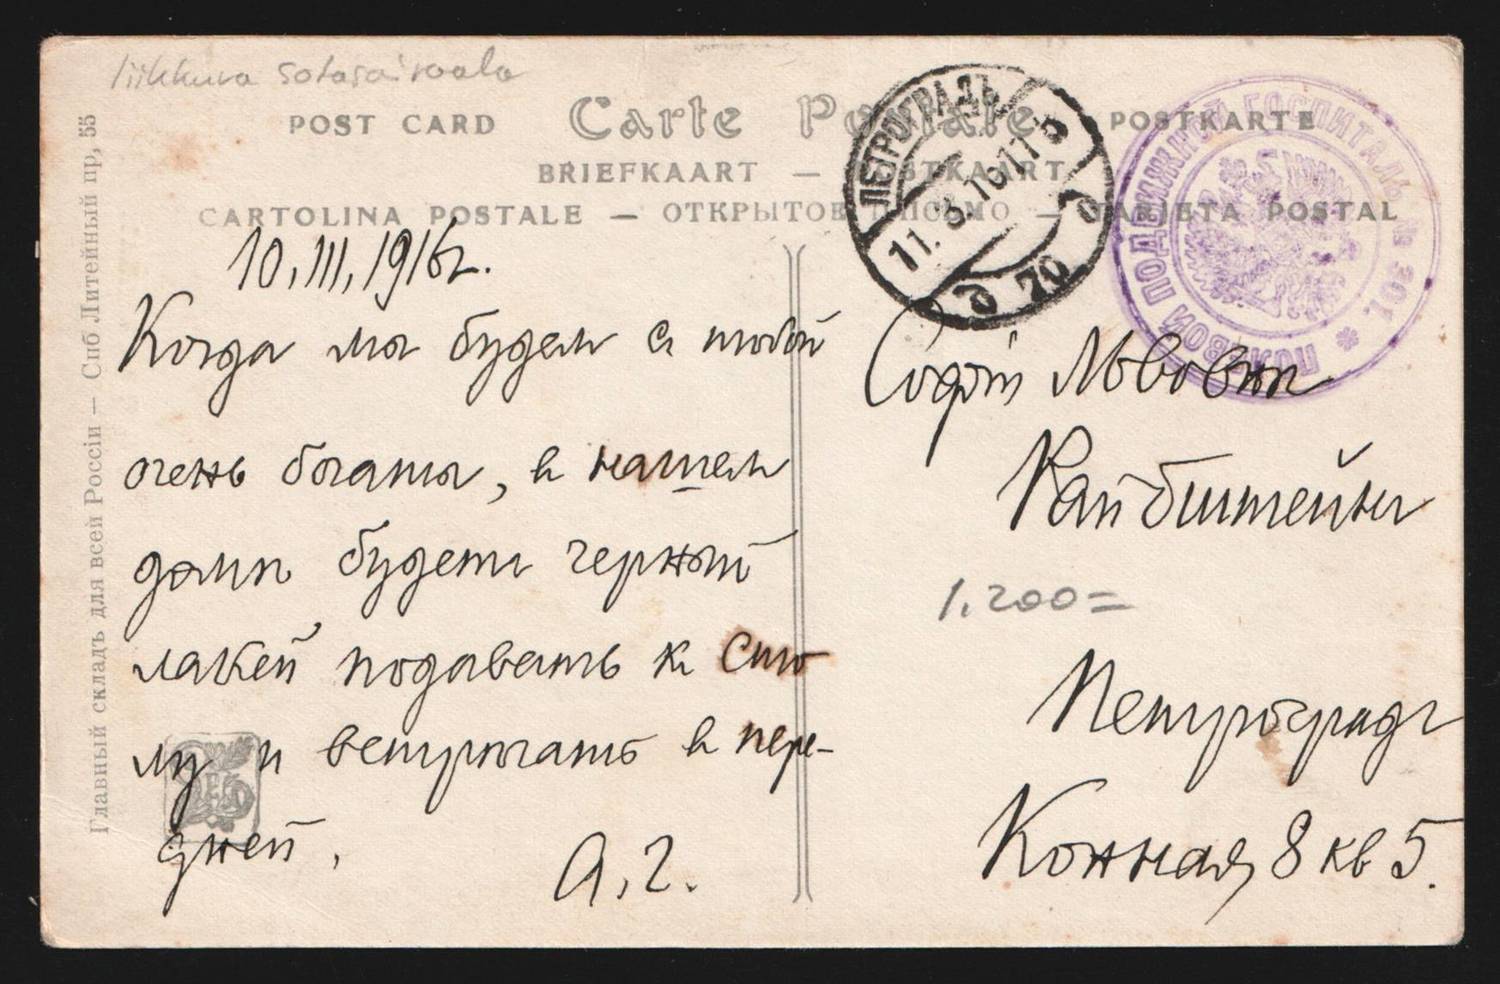 liikkuva sotasairaala
POST CARD Carte Postale POSTKARTE
BRIEFKAART — POSTKAART
CARTOLINA POSTALE — ОТКРЫТОЕ ПИСЬМО — TARJETA POSTAL
Главный складъ для всей Россіи — Спб Литейный пр, 55
ПЕТРОГРАДЪ
11.3.16
ПОЛЕВОЙ ПОДВИЖНОЙ ГОСПИТАЛЬ № 301
10, III, 1916 г.
Когда мы будем с тобой
очень богаты, в нашем
доме будет черный
лакей подавать к сто
лу и встречать в пере-
дней.
А. Г.
Софіи Львовне
Райбштейн
1.200=
Петроград
Конная 8 кв 5.